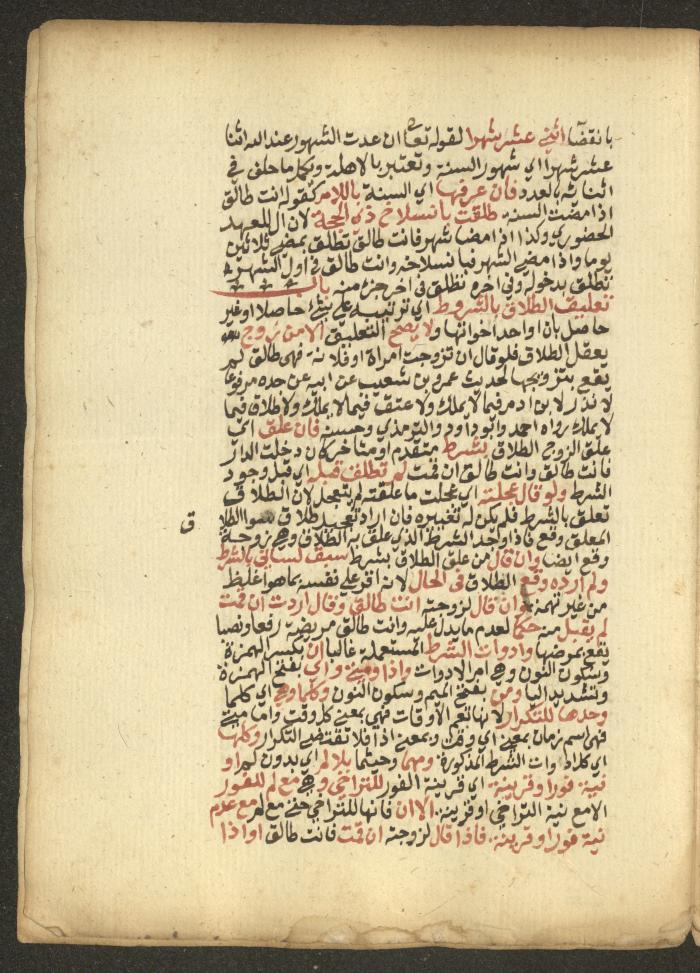 بانقضا اثني عشر شهرا لقوله تعا ان عدت الشهور عند الله اثنا
عشر شهرا اي شهور السنة وتعتبر بالاهلة ويكمل ما حلف في
اثنائه بالعدد فان عرفها اي السنة باللام كقوله انت طالق
اذا مضت السنة طلقت بانسلاخ ذي الحجة لان ال للعهد
الحضوري وكذا اذا مضا شهر فانت طالق تطلق بمضي ثلاثين
يوما واذا مضي الشهر فبانسلاخه وانت طالق في اول الشهر
تطلق بدخوله وفي اخره تطلق في اخر جزء منه باب
تعليق الطلاق بالشروط اي ترتيبه علي شيئ حاصل او غير
حاصل بان او احدا خواتها ولا يصح التعليق الا من زوج
يعقل الطلاق فلو قال ان تزوجت امراة او فلانة فهي طالق لم
يقع بتزويجها لحديث عمر بن شعيب عن ابيه عن جده مرفوعا
لا نذر لابن ادم فيما لا يملك ولا عتق فيما لا يملك ولا طلاق فيما
لا يملك رواه احمد وابو داود والترمذي وحسنه فان علق اي
علق الزوج الطلاق بشرط متقدم او متاخر كان دخلت الدار
فانت طالق وانت طالق ان قمت لم تطلق قبله اي قبل وجود
الشرط ولو قال عجلته اي عجلت ما علقته لم يتعجل لان الطلاق
تعلق بالشرط فلم يكن له تغييره فان اراد تعجيل طلاق سوا الطلا
ق
المعلق وقع فاذا وجد الشرط الذي علق به الطلاق وهي زوجة
وقع ايضا وان قال من علق الطلاق بشرط سبق لساني بالشرط
ولم ارده وقع الطلاق في الحال لانه اقر علي نفسه بما هو اغلظ
من غير تهمة وان قال لزوجته انت طالق وقال اردت ان قمت
لم يقبل منه حكما لعدم ما يدل عليه وانت طالق مريضة رفعا ونصبا
يقع بمرضها وادوات الشرط المستعملة غالبا ان بكسر الهمزة
وسكون النون وهي ام الادوات واذا ومتي واي بفتح الهمزة
وتشديد اليا ومن بفتح الميم وسكون النون وكلما وهي اي كلما
وحدها للتكرار لانها تعم الاوقات فهي بمعني كل وقت واما متي
فهي اسم زمان بمعني اي وقت وبمعني اذا فلا تقتضي التكرار وكلها
اي كل ادوات الشرط المذكورة ومهما وحيثما بلا لم اي بدون لم او
نية فورا وقرينة اي قرينة الفور للتراخي وهي مع لم للفور
الا مع نية التراخي او قرينة الا ان فانها للتراخي حتي مع لم مع عدم
نية فور او قرينة فاذا قال لزوجته ان قمت فانت طالق او اذا